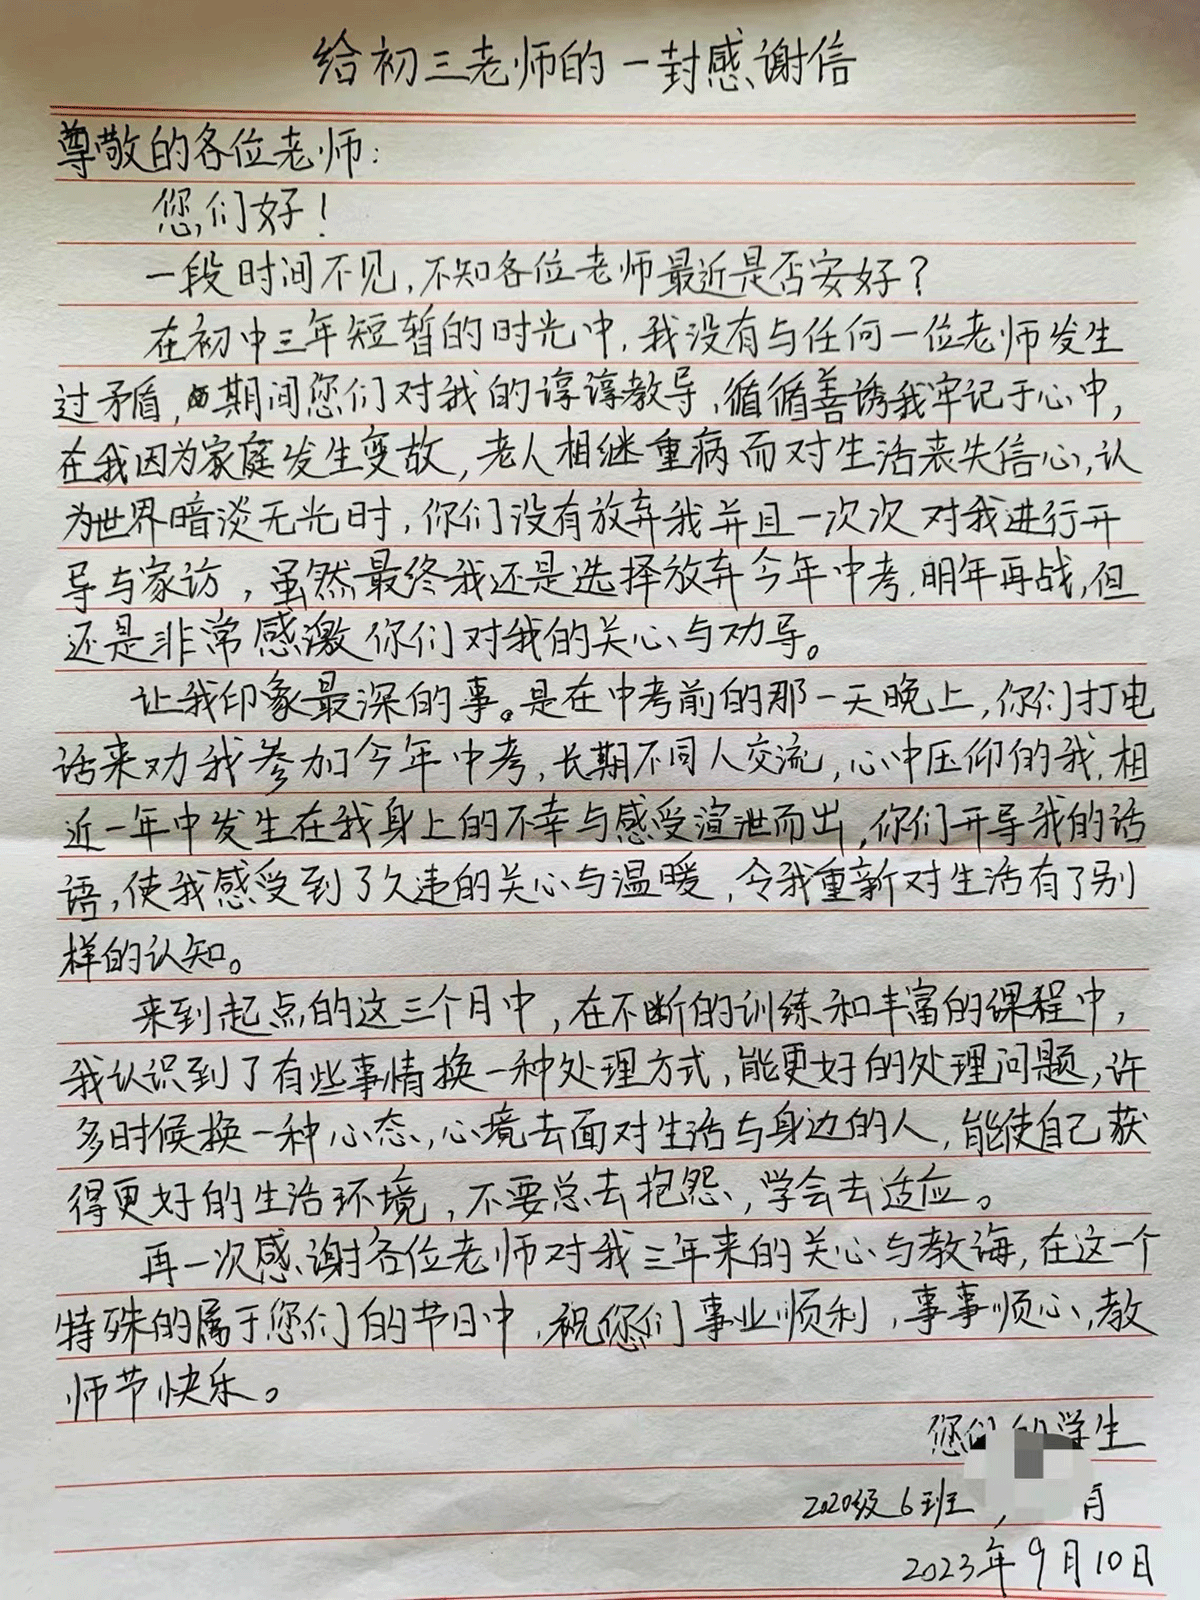 给初三老师的一封感谢信
尊敬的各位老师:
您们好!
一段时间不见,不知各位老师最近是否安好?
在初中三年短暂的时光中,我没有与任何一位老师发生
过矛盾,期间您们对我的谆谆教导、循循善诱我牢记于心中,
在我因为家庭发生变故,老人相继重病而对生活丧失信心,认
为世界暗淡无光时,你们没有放弃我并且一次次对我进行开
导与家访,虽然最终我还是选择放弃今年中考,明年再战,但
还是非常感激你们对我的关心与劝导。
让我印象最深的事。是在中考前的那一天晚上,你们打电
话来劝我参加今年中考,长期不同人交流,心中压仰的我,相
近一年中发生在我身上的不幸与感受渲泄而出,你们开导我的话
语,使我感受到了久违的关心与温暖,令我重新对生活有了别
样的认知。
来到起点的这三个月中,在不断的训练和丰富的课程中,
我认识到了有些事情换一种处理方式,能更好的处理问题,许
多时候换一种心态,心境去面对生活与身边的人,能使自己获
得更好的生活环境,不要总去抱怨,学会去适应。
再一次感谢各位老师对我三年来的关心与教诲,在这一个
特殊的属于您们的节日中,祝您们事业顺利,事事顺心,教
师节快乐。
您们的学生
2020级6班,
2023年9月10日